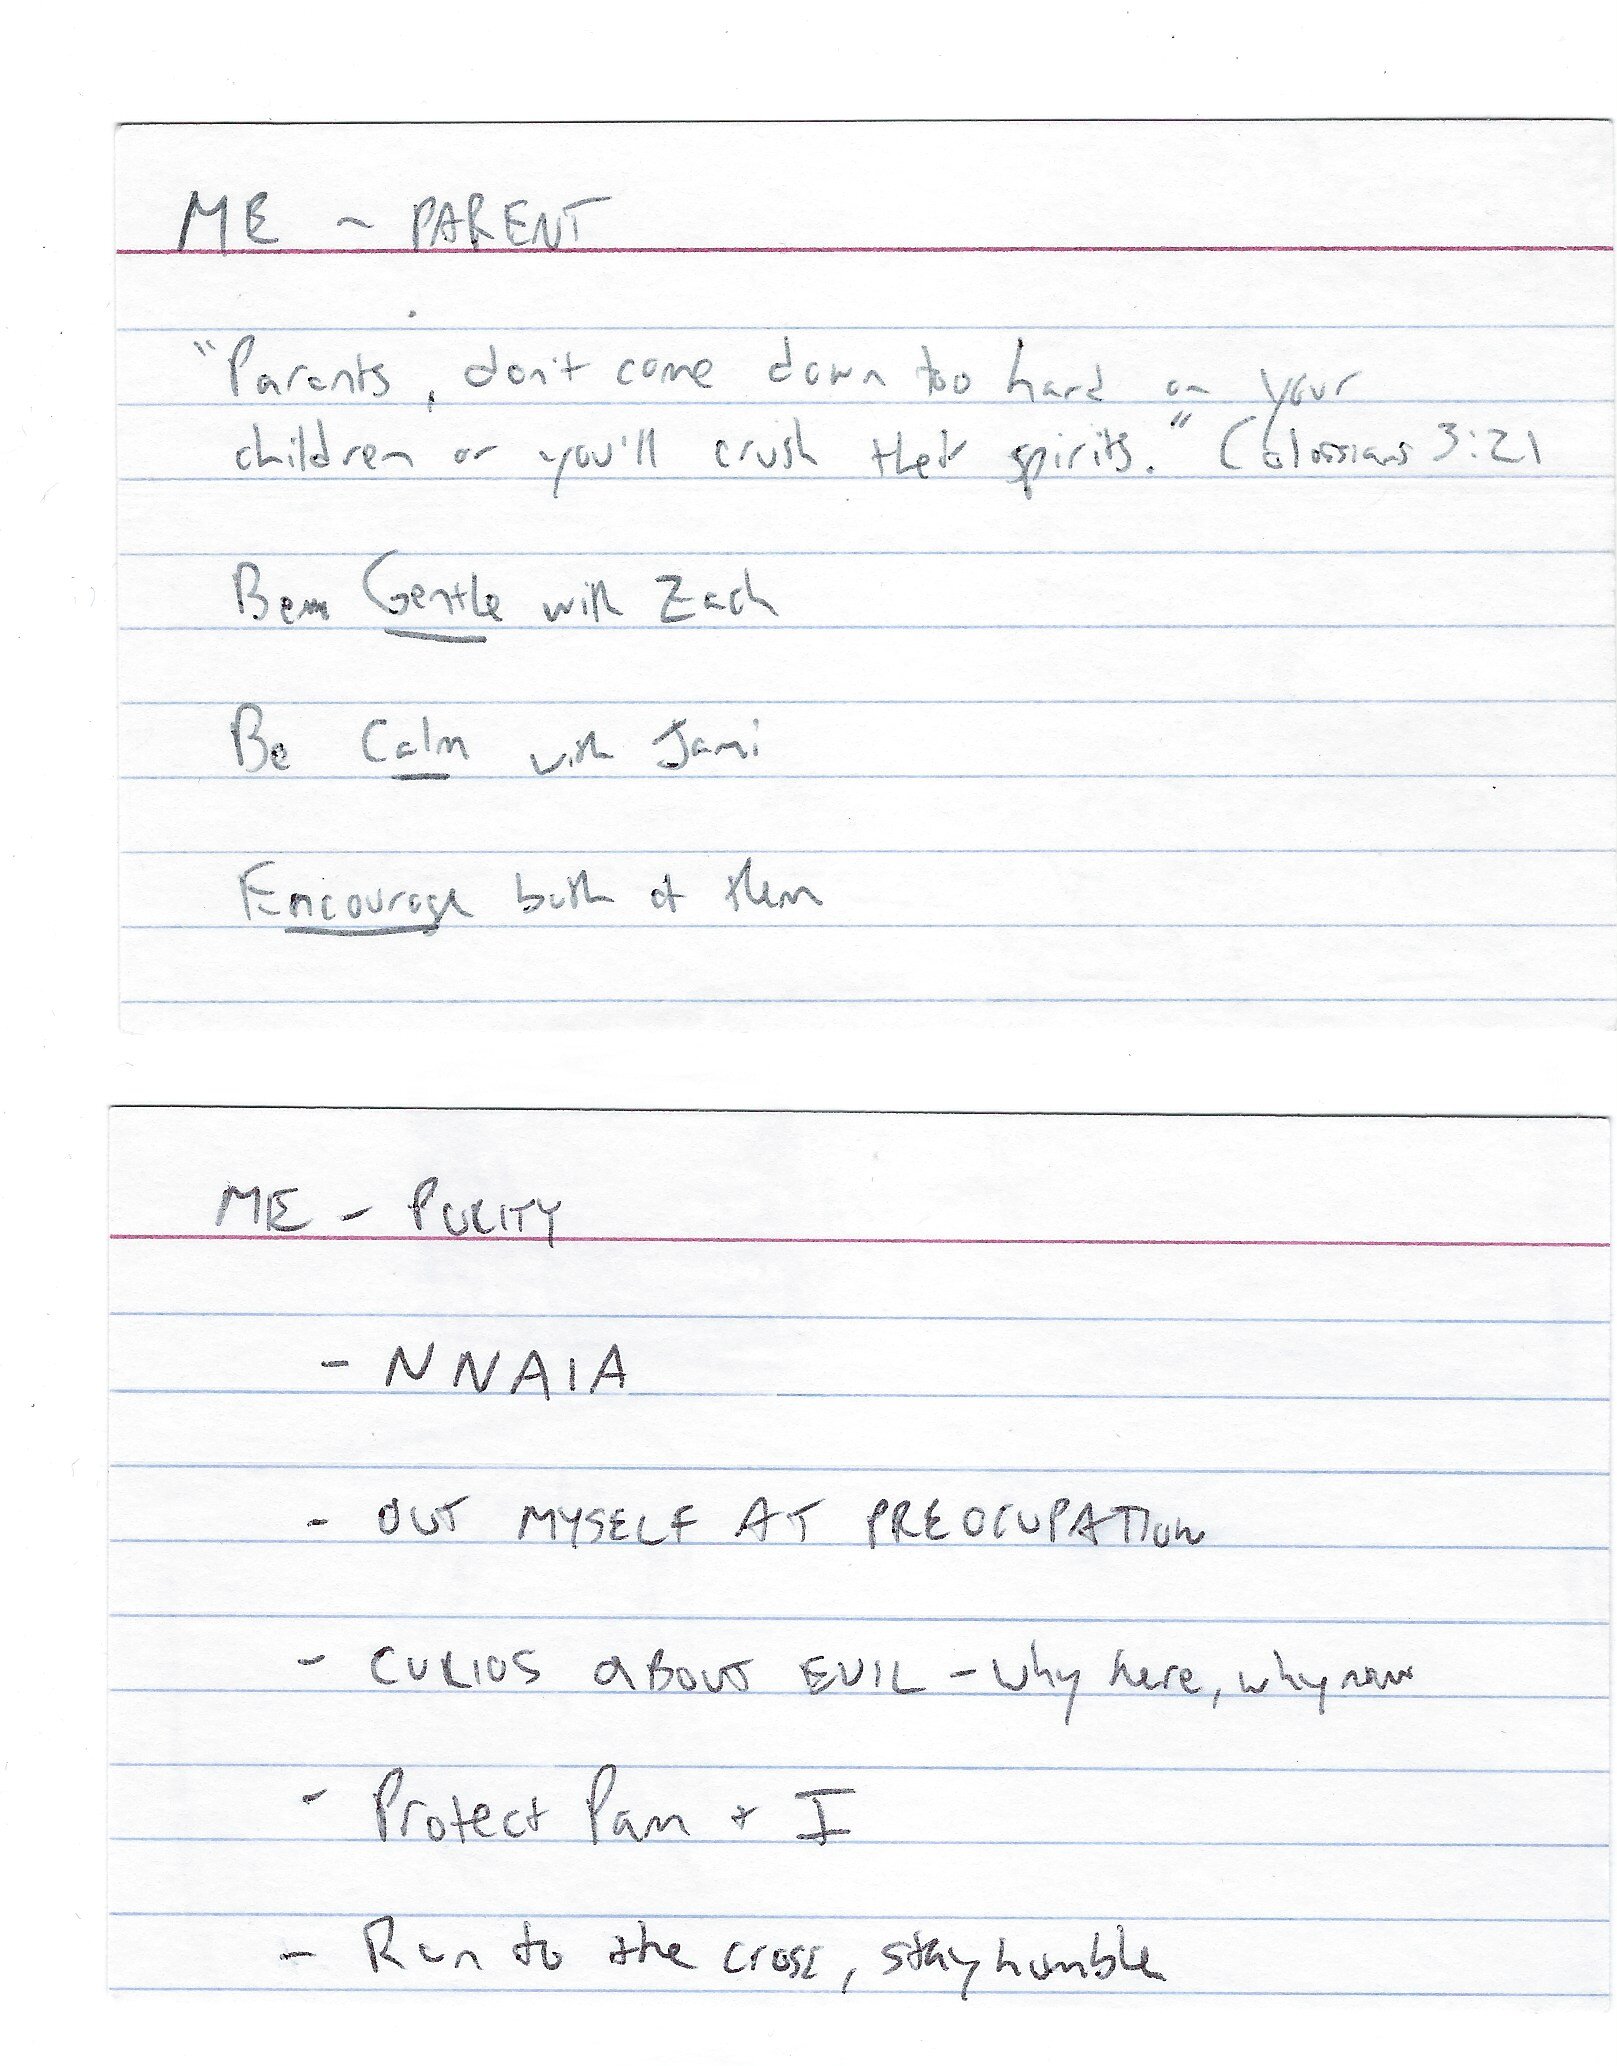 ME ~ PARENT
"Parents, don't come down too hard on your
children or you'll crush their spirits." Colossians 3:21
Be Gentle with Zach
Be Calm with Jami
Encourage both of them
ME - PURITY
- NNAIA
- OUT MYSELF AT PREOCUPATION
- CURIOS ABOUT EVIL - Why here, why now
- Protect Pam + I
- Run to the cross, stay humble